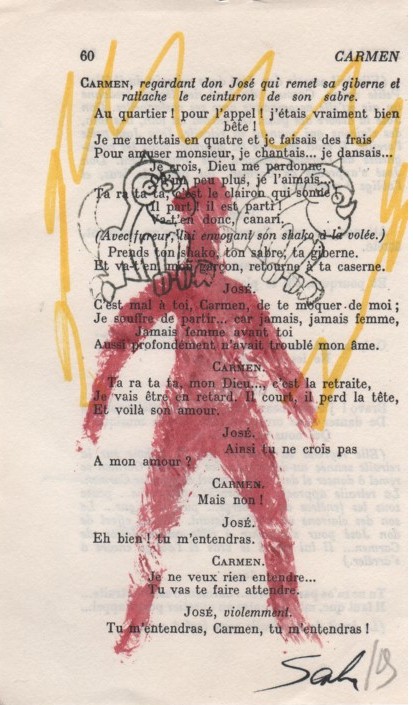 60 CARMEN
CARMEN, regardant don José qui remet sa giberne et
rattache le ceinturon de son sabre.
Au quartier ! pour l'appel ! j'étais vraiment bien
bête !
Je me mettais en quatre et je faisais des frais
Pour amuser monsieur, je chantais... je dansais...
Je crois, Dieu me pardonne,
Qu'un peu plus, je l'aimais...
Ta ra ta ta, c'est le clairon qui sonde
Il part ! il est parti !
Va-t'en donc, canari,
(Avec fureur, lui envoyant son shako à la volée.)
Prends ton shako, ton sabre, ta giberne.
Et va-t'en mon garçon, retourne à ta caserne.
JOSÉ.
C'est mal à toi, Carmen, de te moquer de moi ;
Je souffre de partir... car jamais, jamais femme,
Jamais femme avant toi
Aussi profondément n'avait troublé mon âme.
CARMEN.
Ta ra ta ta, mon Dieu..., c'est la retraite,
Je vais être en retard. Il court, il perd la tête,
Et voilà son amour.
JOSÉ.
Ainsi tu ne crois pas
A mon amour ?
CARMEN.
Mais non !
JOSÉ.
Eh bien ! tu m'entendras.
CARMEN.
Je ne veux rien entendre...
Tu vas te faire attendre.
JOSÉ, violemment.
Tu m'entendras, Carmen, tu m'entendras !